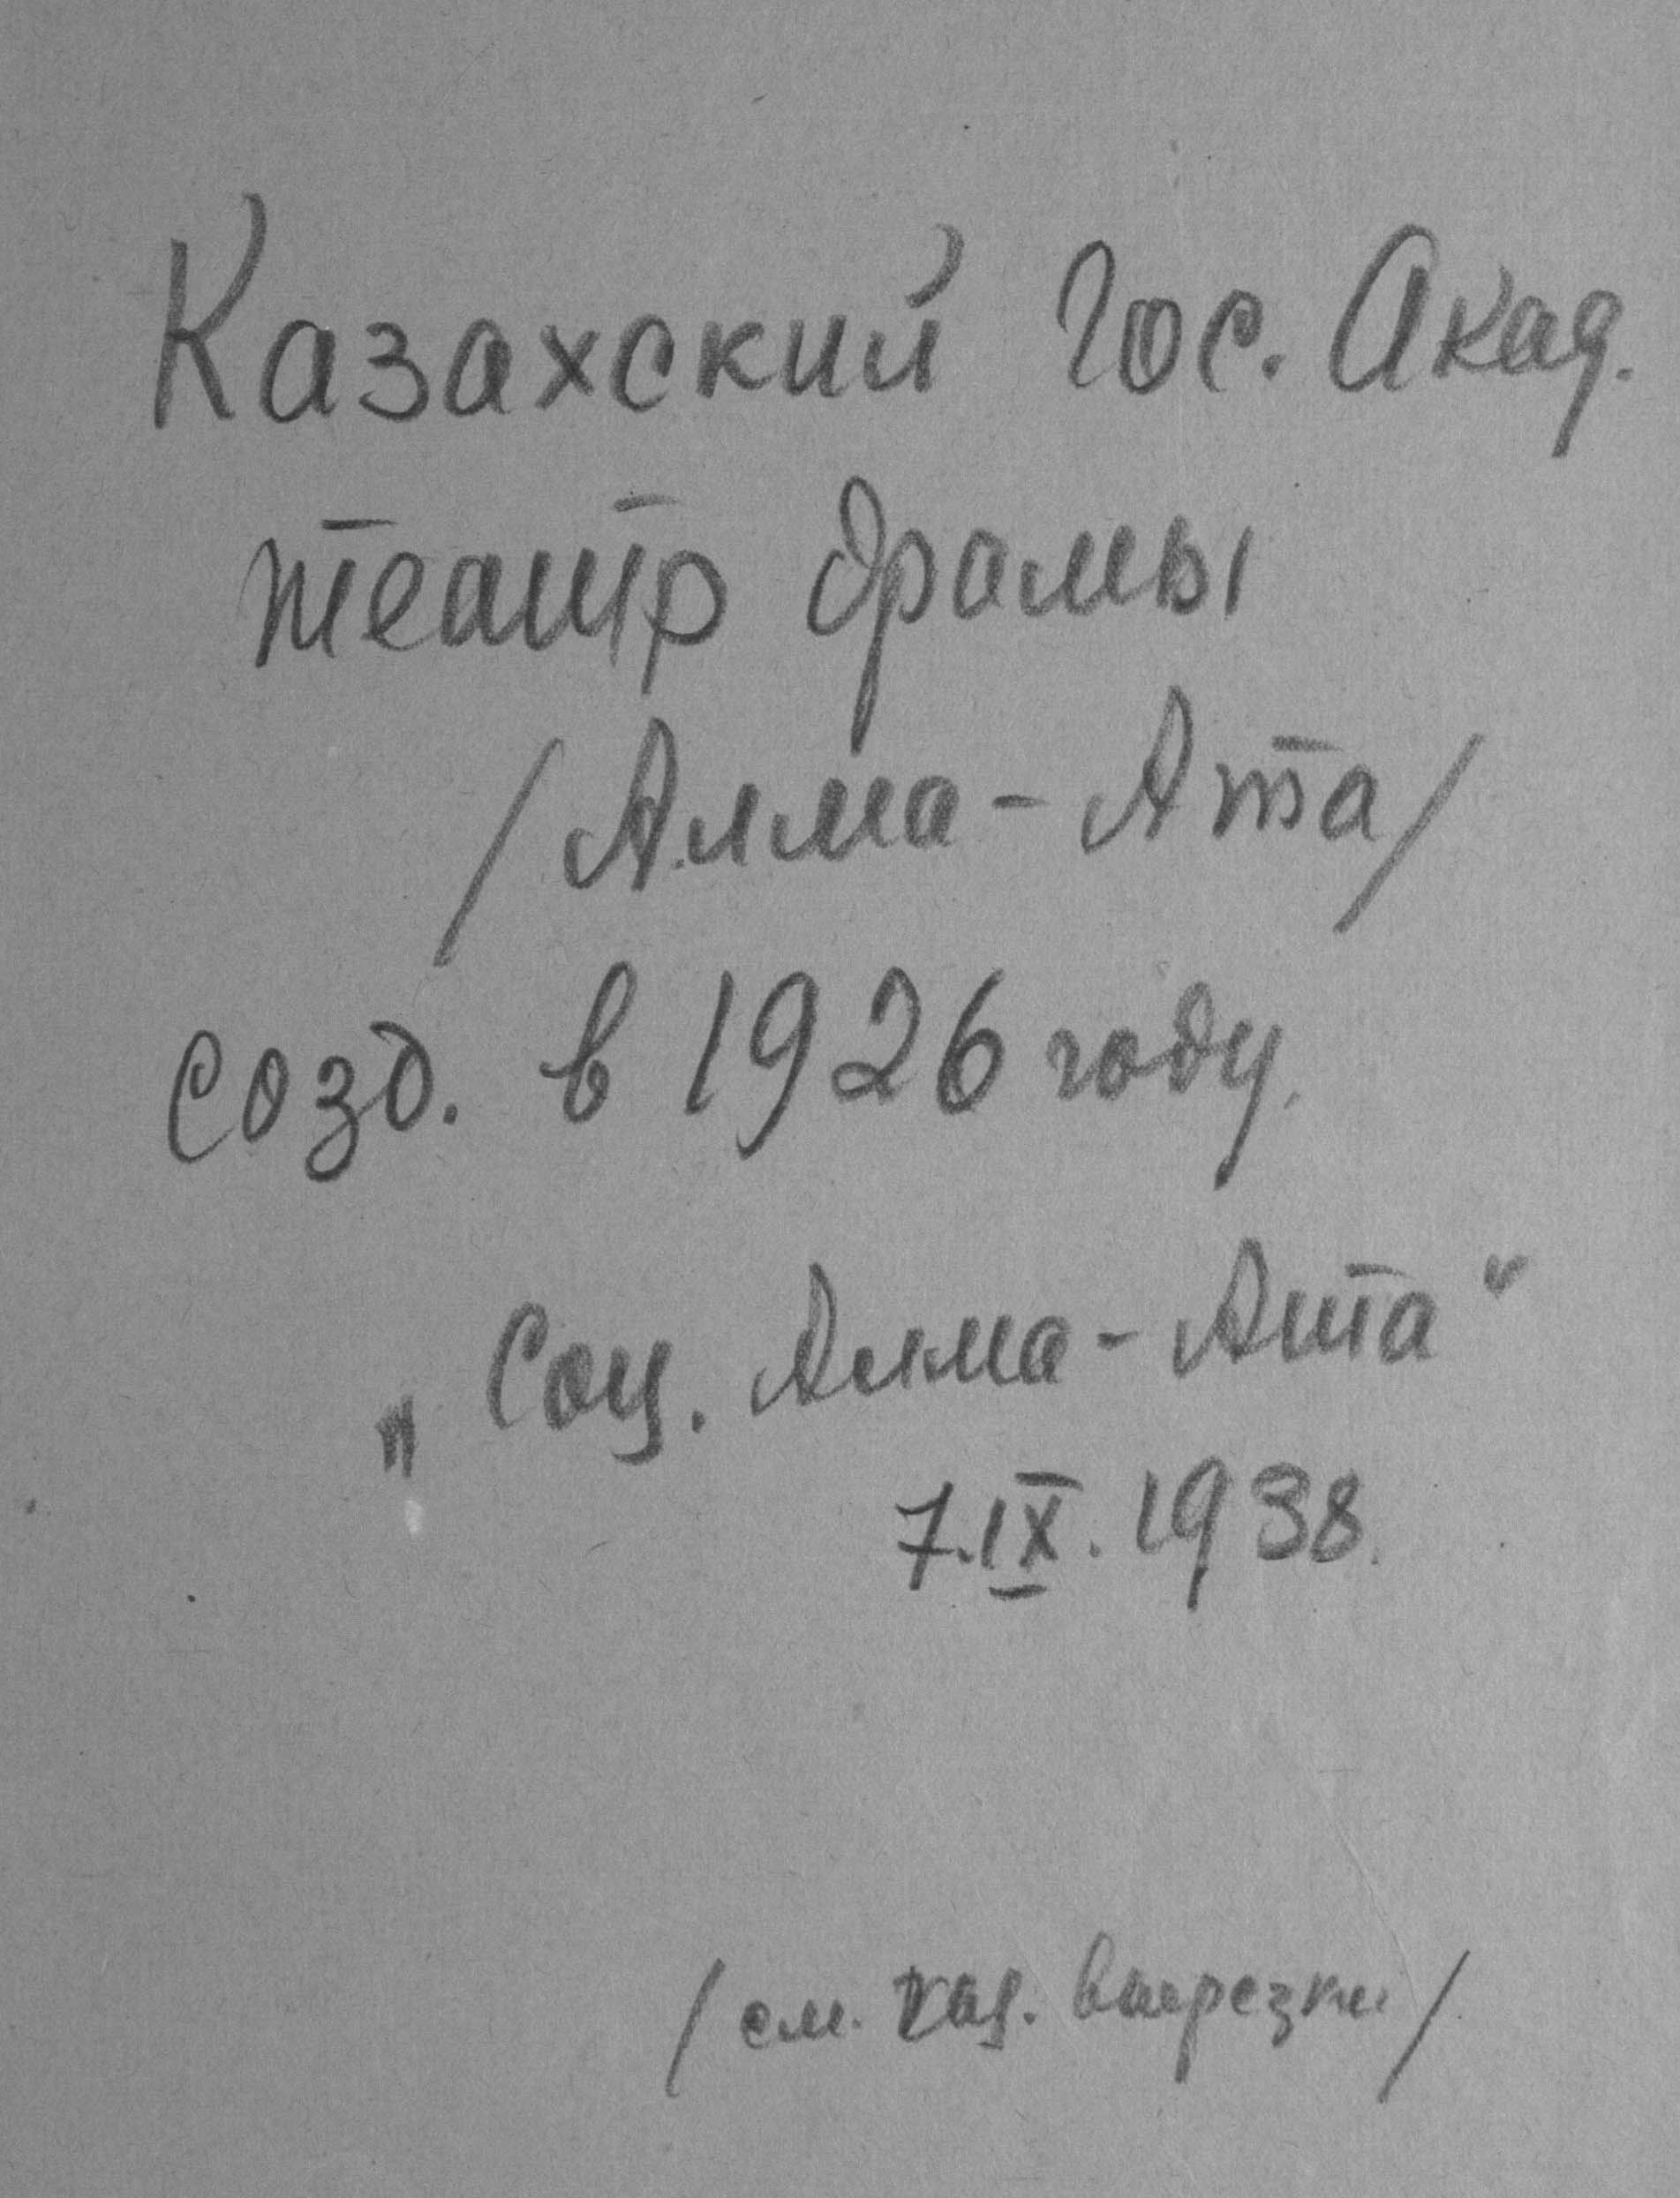 Казахский Гос. Акад.
театр драмы
/Алма-Ата/
созд. в 1926 году.
„Соц. Алма-Ата"
7.IX.1938.
/см. вырезки/